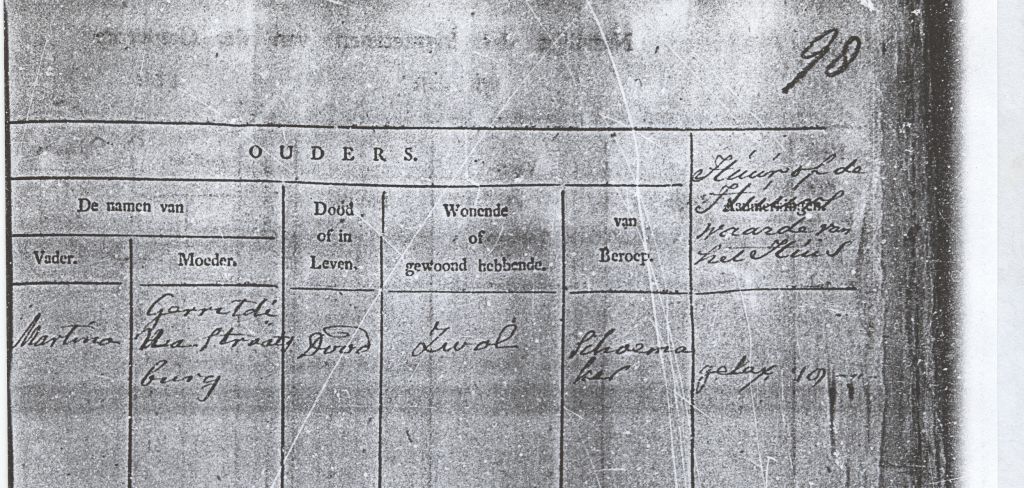 98
OUDERS.
De namen van
Vader.
Moeder.
Dood
of in
Leven.
Wonende
of
gewoond hebbende.
van
Beroep.
Huur of de
waarde van
het Huis
Martinus
Gerritdi
na Straats
burg
Dood
Zwol
Schoema
ker